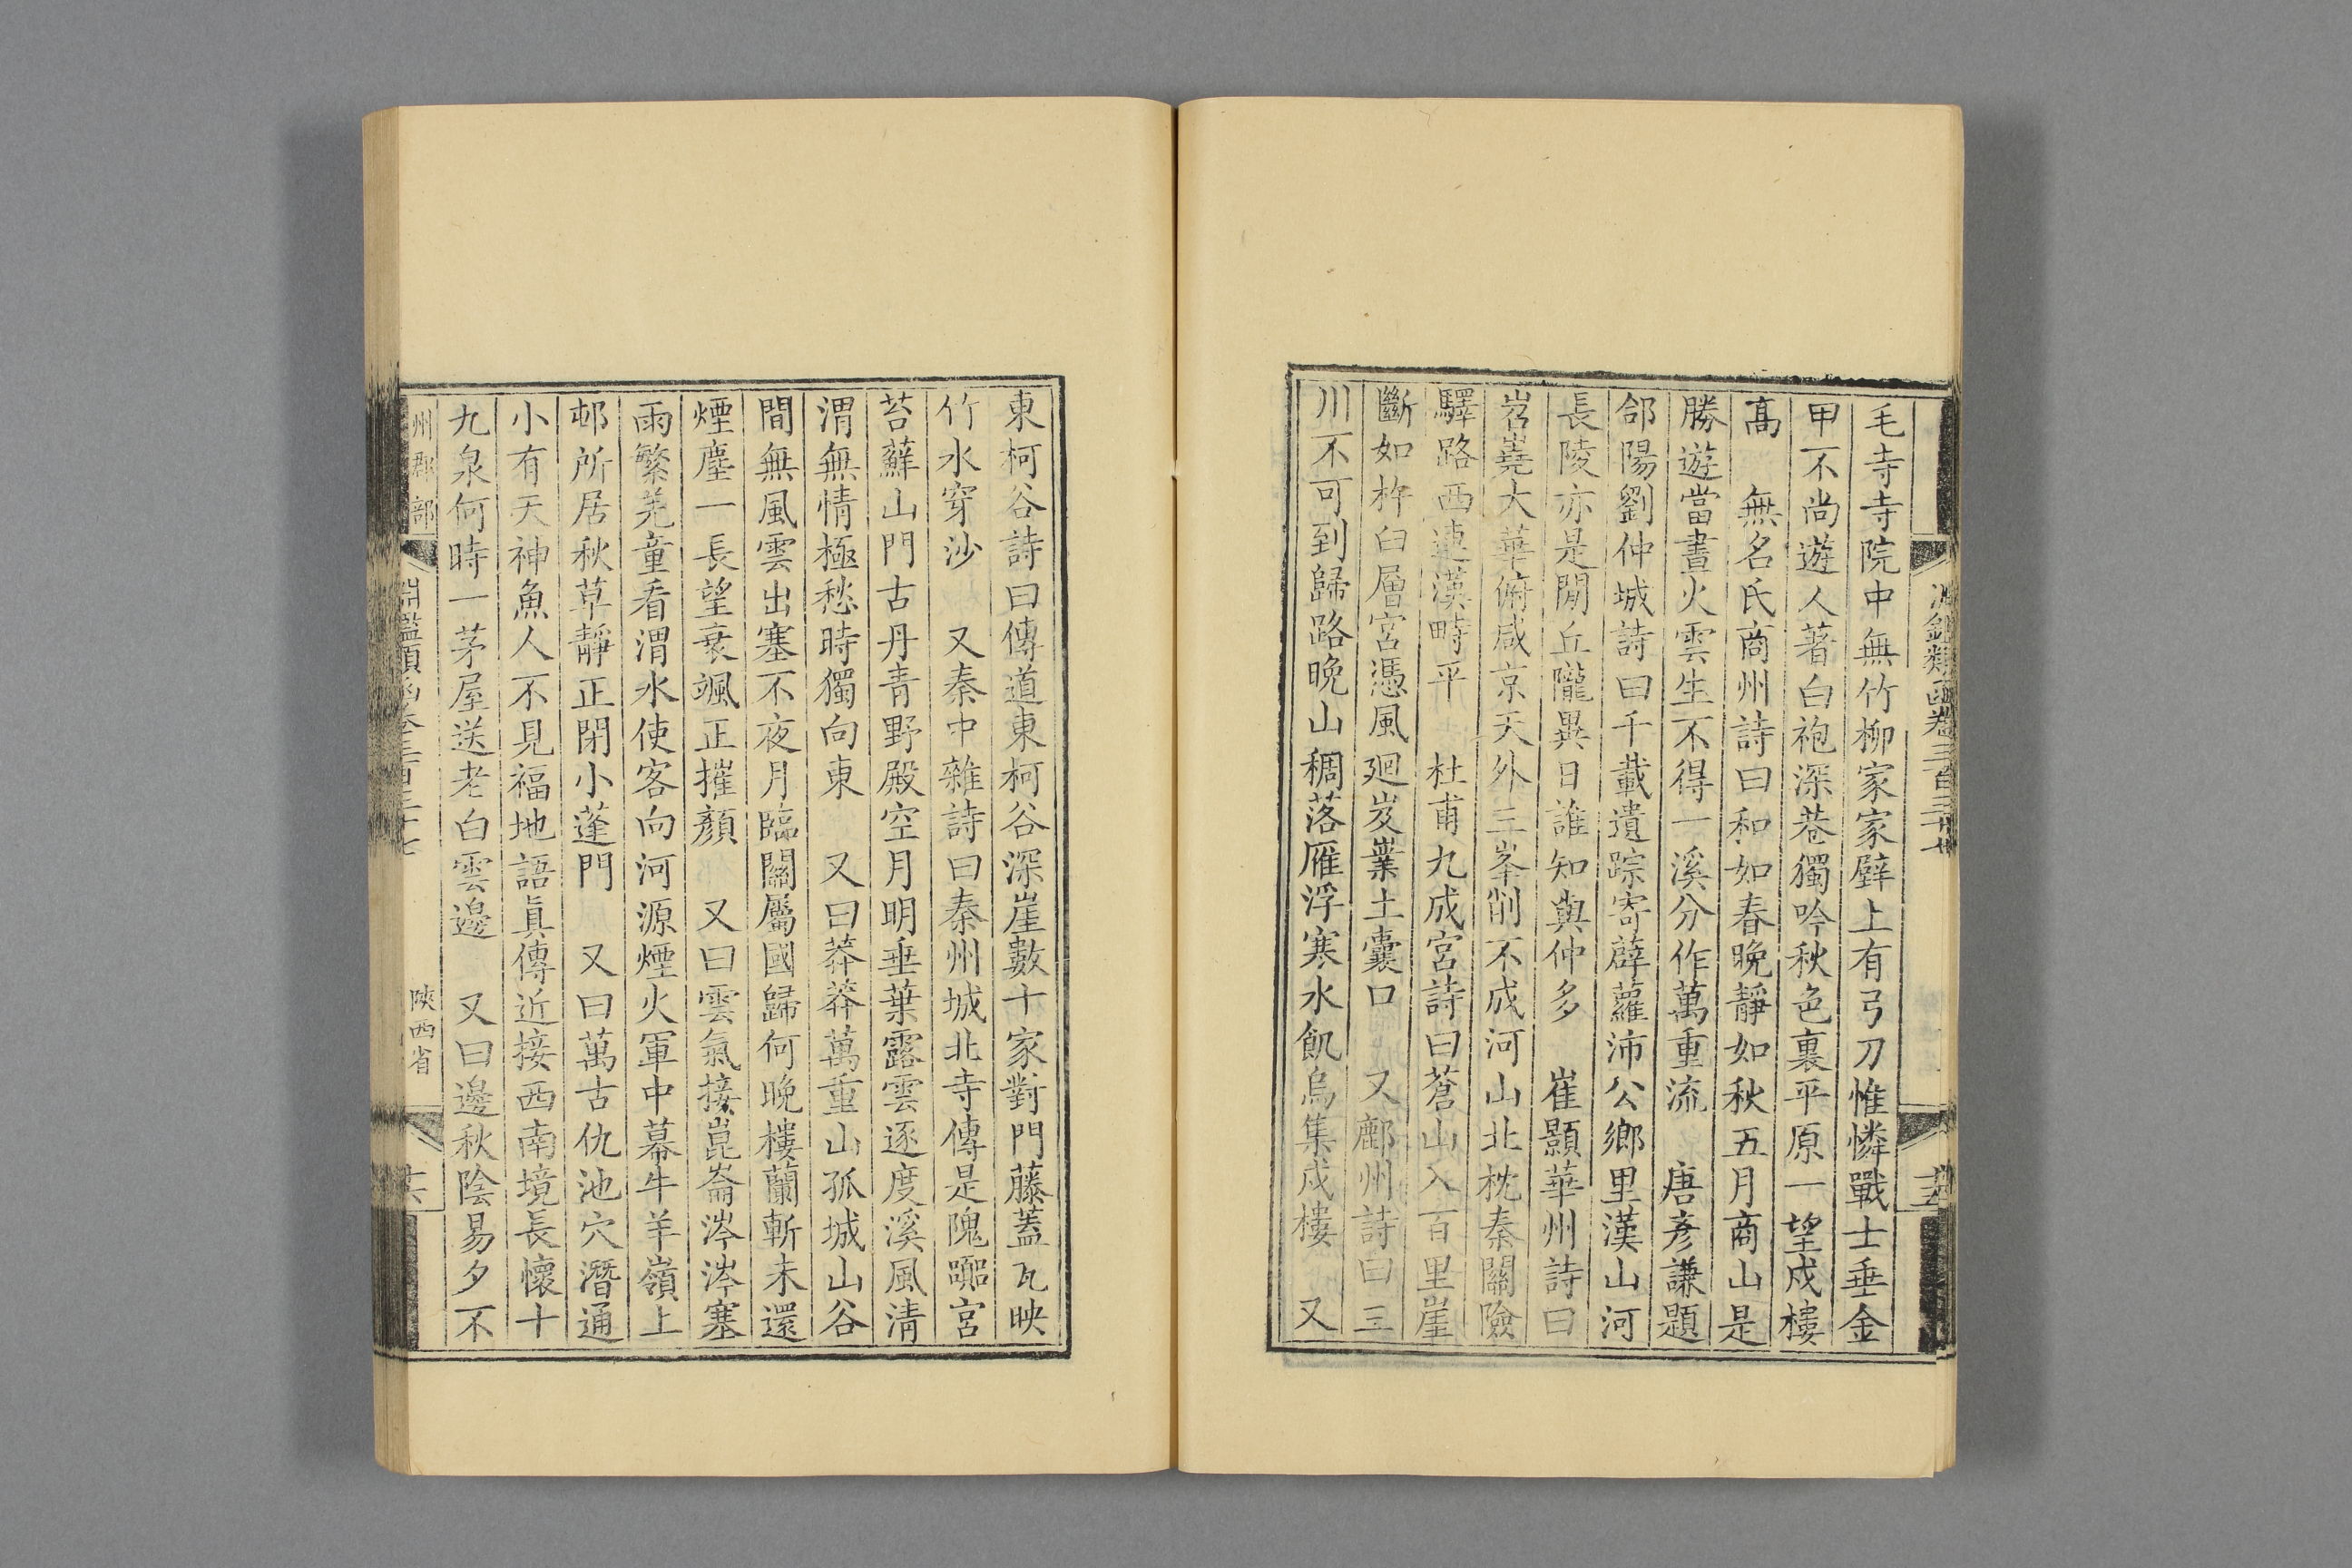 毛寺寺院中無竹柳家家壁上有弓刀惟憐戰士垂金
甲不尚遊人著白袍深巷獨吟秋色裏平原一望戍樓
高　無名氏商州詩曰和如春晚靜如秋五月商山是
勝遊當晝火雲生不得一溪分作萬重流　唐彥謙題
郃陽劉仲城詩曰千載遺踪寄薜蘿沛公鄉里漢山河
長陵亦是閒丘隴異日誰知與仲多　崔顥華州詩曰
岧嶤大華俯咸京天外三峯削不成河山北枕秦關險
驛路西連漢畤平　杜甫九成宮詩曰蒼山入百里崖
斷如杵臼層宮憑風迴岌嶪土囊口　又鄜州詩曰三
川不可到歸路晚山稠落雁浮寒水飢烏集戍樓　又
東柯谷詩曰傳道東柯谷深崖數十家對門藤蓋瓦映
竹水穿沙　又秦中雜詩曰秦州城北寺傳是隗囂宮
苔蘚山門古丹青野殿空月明垂葉露雲逐度溪風清
渭無情極愁時獨向東　又曰莽莽萬重山孤城山谷
間無風雲出塞不夜月臨關屬國歸何晚樓蘭斬未還
煙塵一長望衰颯正摧顏　又曰雲氣接崑崙涔涔塞
雨繁羌童看渭水使客向河源煙火軍中幕牛羊嶺上
邨所居秋草靜正閉小蓬門　又曰萬古仇池穴潛通
小有天神魚人不見福地語真傳近接西南境長懷十
九泉何時一茅屋送老白雲邊　又曰邊秋陰易夕不
州郡部　淵鑑類函卷三百三十七　陝西省